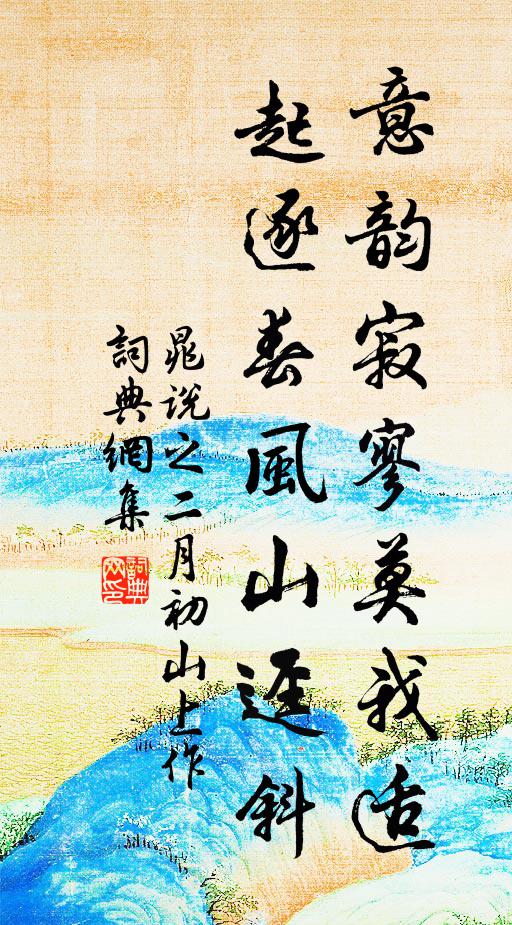 意韵寂寥莫我适
起逐春風山逕斜
晁说之二月初山上作
詞典網集
詞典網印